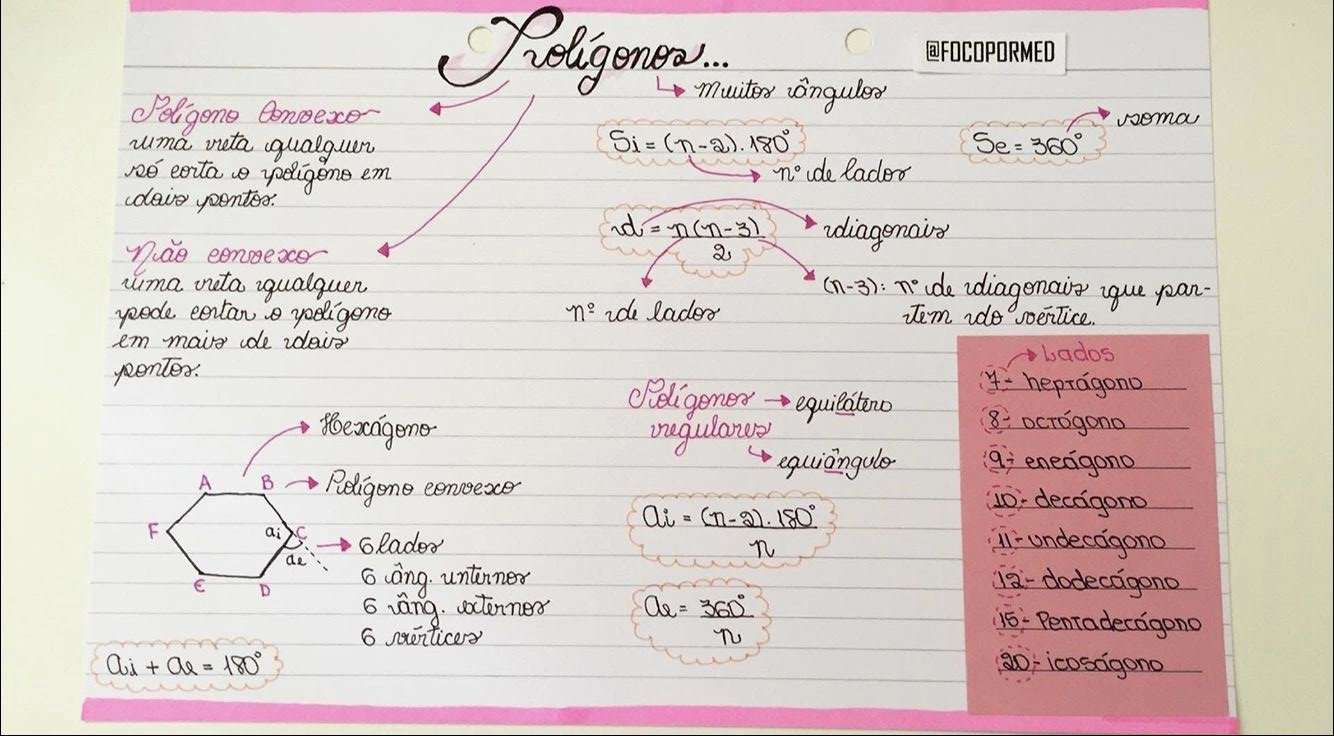 Polígonos...
@FOCOPORMED
Muitos ângulos
Polígono Convexo
uma reta qualquer
só corta o polígono em
dois pontos.
Não convexo
uma reta qualquer
pode cortar o polígono
em mais de dois
pontos.
Si = (n-2).180°
nº de lados
Se = 360°
soma
d = n(n-3)
2
diagonais
nº de lados
(n-3): nº de diagonais que par-
tem do vértice.
Hexágono
Polígono convexo
A
B
C
D
E
F
ai
ae
6 lados
6 âng. internos
6 âng. externos
6 vértices
ai + ae = 180°
Polígonos
regulares
equilátero
equiângulo
ai = (n-2).180°
n
ae = 360°
n
Lados
7- heptágono
8- octógono
9- eneágono
10- decágono
11- undecágono
12- dodecágono
15- Pentadecágono
20- icoságono